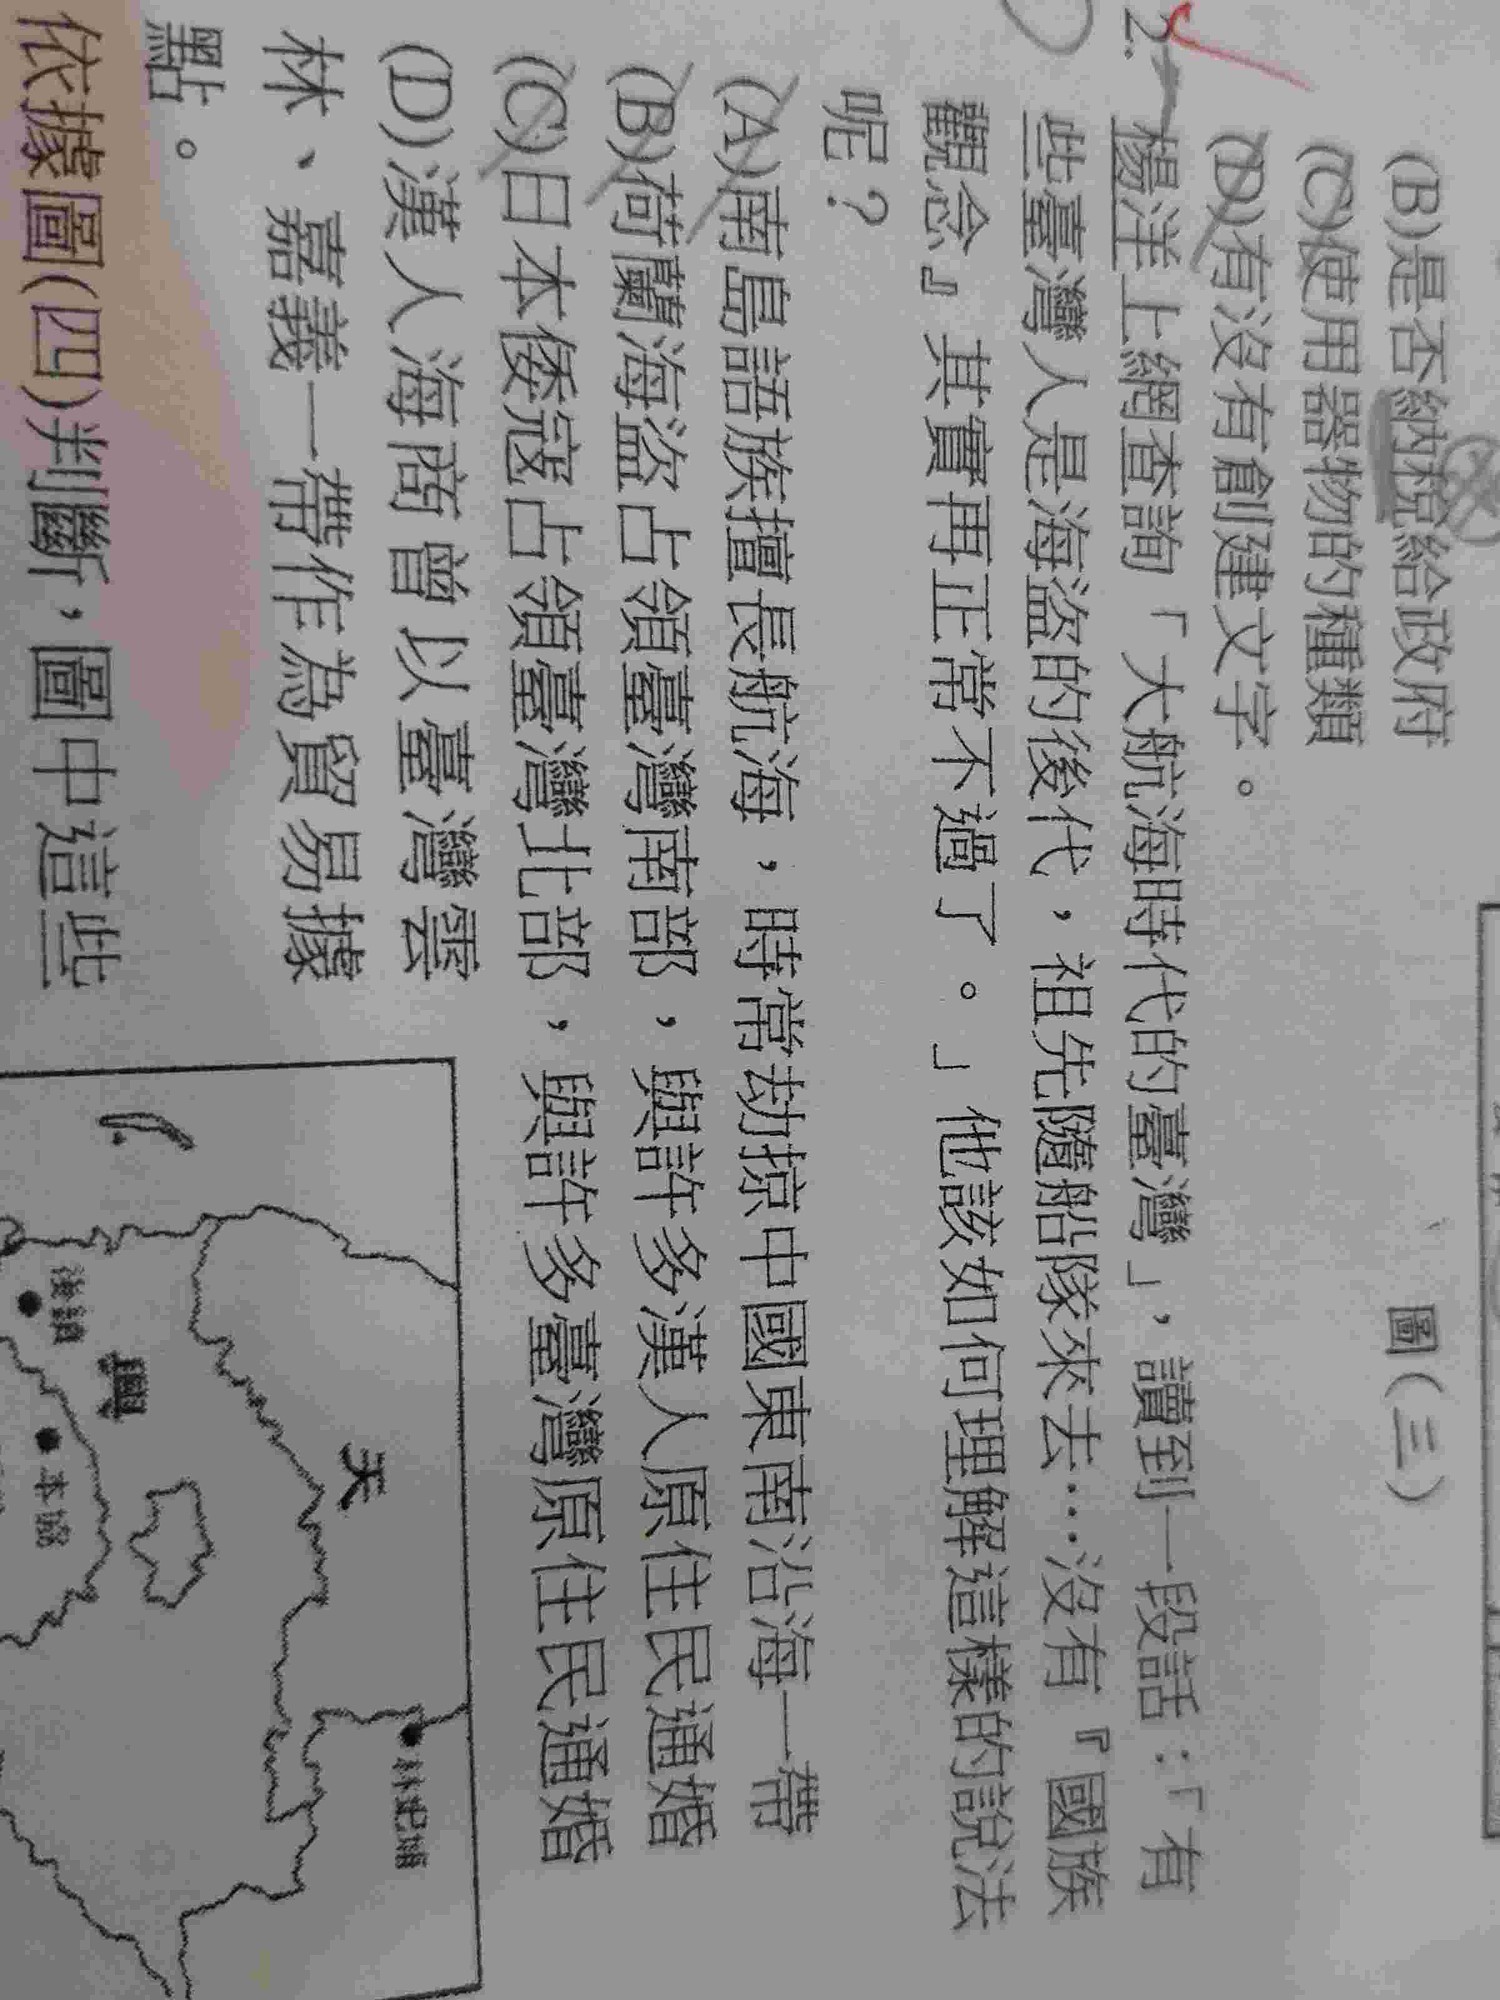 (B)是否納稅給政府
(C)使用器物的種類
(D)有沒有創建文字。
圖(三)
2.楊洋上網查詢「大航海時代的臺灣」，讀到一段話：「有
些臺灣人是海盜的後代，祖先隨船隊來去…沒有『國族
觀念』其實再正常不過了。」他該如何理解這樣的說法
呢？
(A)南島語族擅長航海，時常劫掠中國東南沿海一帶
(B)荷蘭海盜占領臺灣南部，與許多漢人原住民通婚
(C)日本倭寇占領臺灣北部，與許多臺灣原住民通婚
(D)漢人海商曾以臺灣雲
林、嘉義一帶作為貿易據
點。
依據圖(四)判斷，圖中這些
天
興
林圯埔